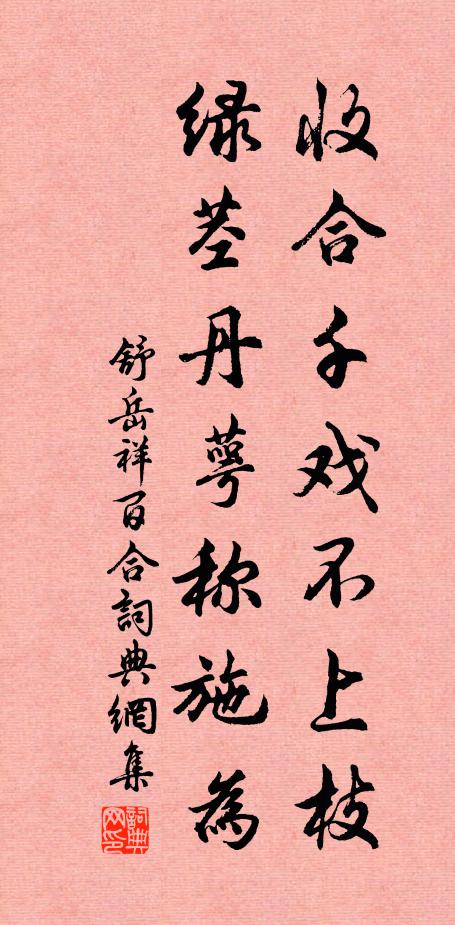 收合千戏不上枝
绿茎丹萼称施為
舒岳祥百合詞典網集
詞典网印